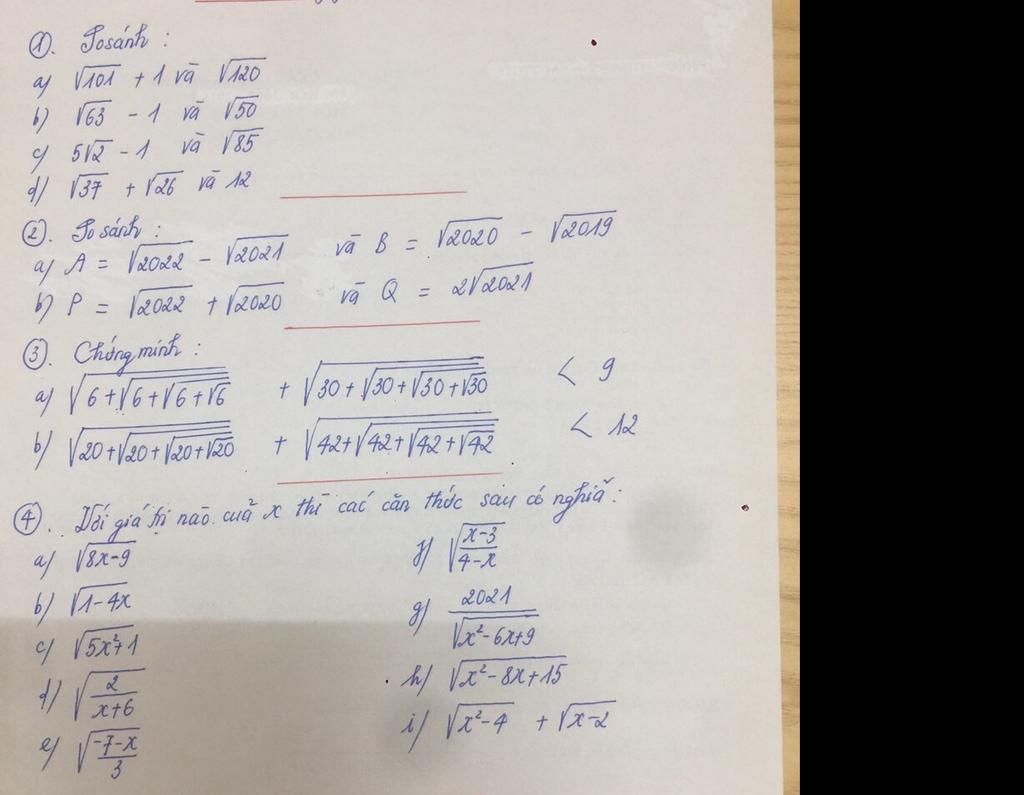 1. So sánh :
a) √101 + 1 và √120
b) √63 - 1 và √50
c) 5√2 - 1 và √85
d) √37 + √26 và 12
2. So sánh :
a) A = √2022 - √2021 và B = √2020 - √2019
b) P = √2022 + √2020 và Q = 2√2021
3. Chứng minh :
a) √(6+√(6+√(6+√6))) + √(30+√(30+√(30+√30))) < 9
b) √(20+√(20+√(20+√20))) + √(42+√(42+√(42+√42))) < 12
4. Với giá trị nào của x thì các căn thức sau có nghĩa :
a) √(8x-9)
b) √(1-4x)
c) √(5x²+1)
d) √(2/(x+6))
e) √((-7-x)/3)
f) √((x-3)/(4-x))
g) 2021/√(x²-6x+9)
h) √(x²-8x+15)
i) √(x²-4) + √(x-2)